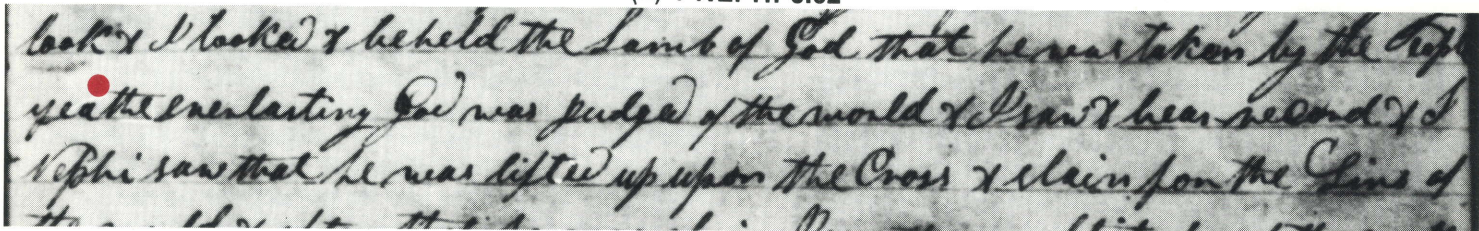 look & I looked & beheld the Lamb of God that he was taken by the Peopl
yea the everlasting God was judged of the world & I saw & bear record & I
Nephi saw that he was lifted up upon the Cross & slain for the Sins of